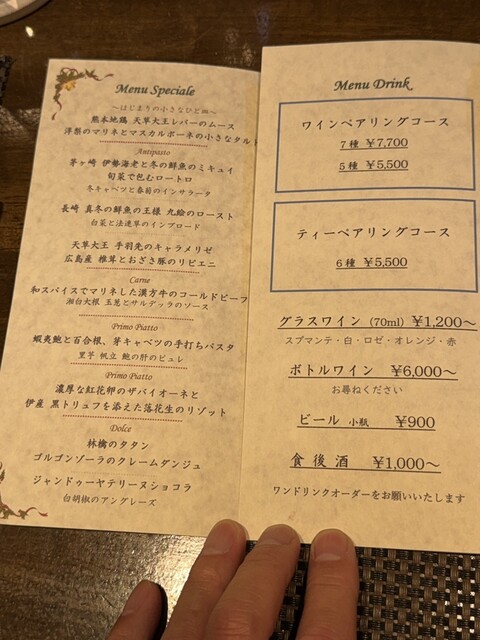 Menu Speciale
～はじまりの小さなひと皿～
熊本地鶏 天草大王レバーのムース
洋梨のマリネとマスカルポーネの小さなタルト
Antipasto
茅ヶ崎 伊勢海老と冬の鮮魚のミキュイ
旬菜で包むロートロ
冬キャベツと春菊のインサラータ
長崎 真冬の鮮魚の王様 九絵のロースト
白菜と法蓮草のインブロード
天草大王 手羽先のキャラメリゼ
広島産 椎茸とおざさ豚のリピエニ
Carne
和スパイスでマリネした漢方牛のコールドビーフ
湘白大根 玉葱とサルデッラのソース
Primo Piatto
蝦夷鮑と百合根、芽キャベツの手打ちパスタ
里芋 帆立 鮑の肝のピュレ
Primo Piatto
濃厚な紅花卵のザバイオーネと
伊産 黒トリュフを添えた落花生のリゾット
Dolce
林檎のタタン
ゴルゴンゾーラのクレームダンジュ
ジャンドゥーヤテリーヌショコラ
白胡椒のアングレーズ
Menu Drink
ワインペアリングコース
7種 ¥7,700
5種 ¥5,500
ティーペアリングコース
6種 ¥5,500
グラスワイン (70ml) ¥1,200～
スプマンテ・白・ロゼ・オレンジ・赤
ボトルワイン ¥6,000～
お尋ねください
ビール 小瓶 ¥900
食後酒 ¥1,000～
ワンドリンクオーダーをお願いいたします